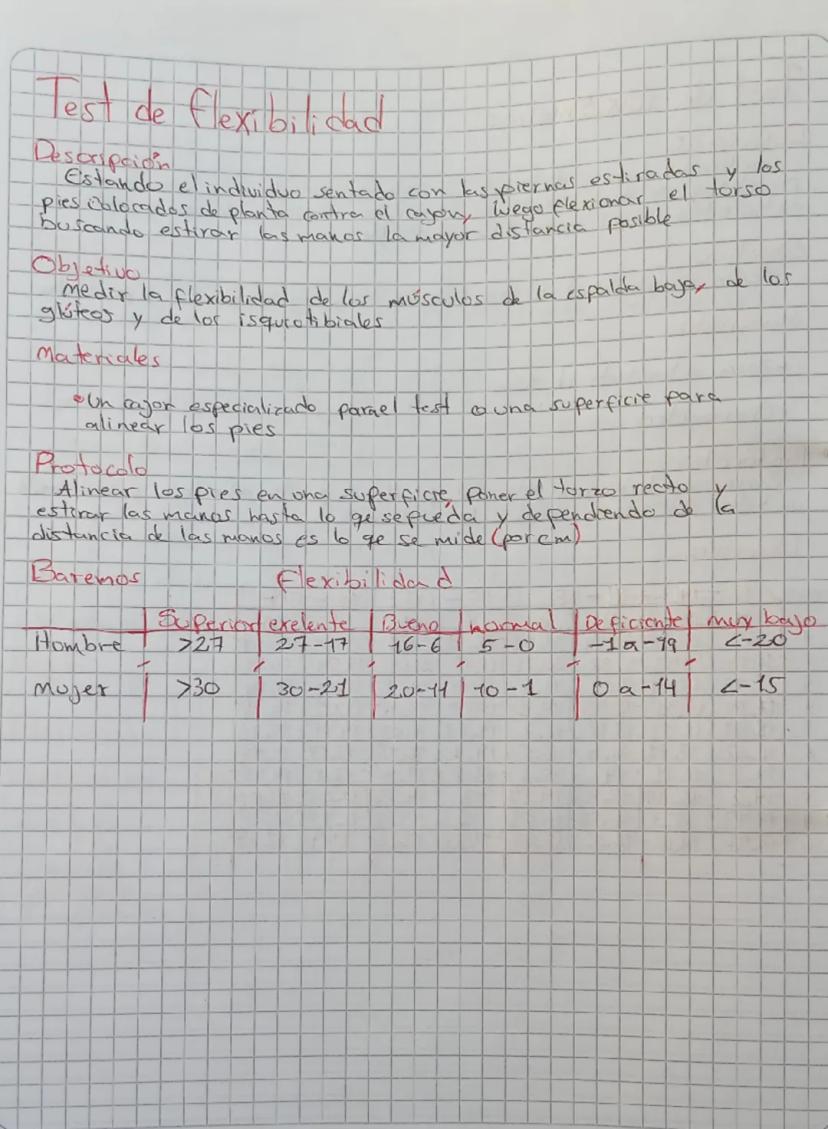 Test de flexibilidad
Descripción
Estando el individuo sentado con las piernas estiradas y los
pies colocados de planta contra el cayon, luego flexionar el torso
buscando estirar las manos la mayor distancia posible
Objetivo
medir la flexibilidad de los músculos de la espalda baja, de los
glúteos y de los isquiotibiales
Materiales
•Un cajon especializado para el test o una superficie para
alinear los pies
Protocolo
Alinear los pies en una superficie, poner el torzo recto y
estirar las manos hasta lo qe se pueda y dependiendo de la
distancia de las manos es lo qe se mide (por cm)
Baremos Flexibilidad
Superior exelente Bueno normal Deficiente muy bajo
Hombre >27 27-17 16-6 5-0 -1 a -19 <-20
mujer >30 30-21 20-11 10-1 0 a -14 <-15